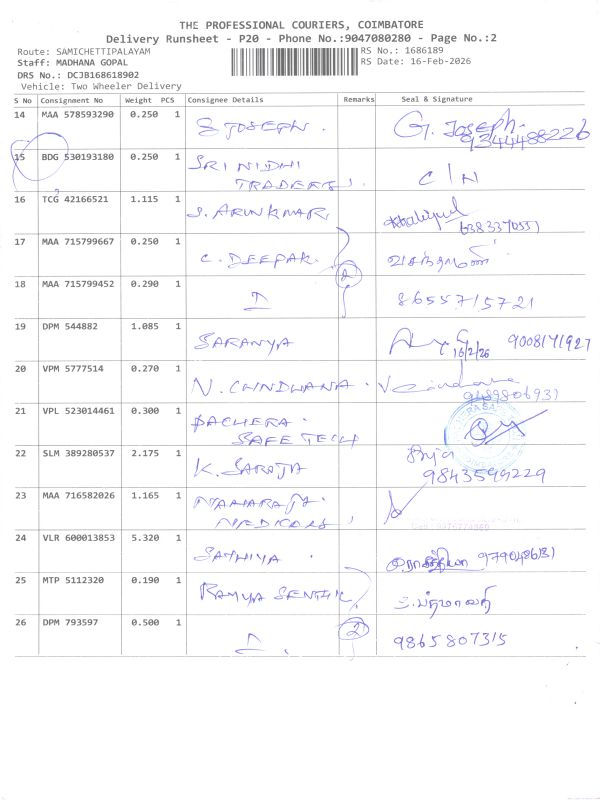 THE PROFESSIONAL COURIERS, COIMBATORE
Delivery Runsheet - P20 - Phone No.:9047080280 - Page No.:2
Route: SAMICHETTIPALAYAM
RS No.: 1686189
Staff: MADHANA GOPAL
RS Date: 16-Feb-2026
DRS No.: DCJB168618902
Vehicle: Two Wheeler Delivery
S No Consignment No Weight PCS Consignee Details Remarks Seal & Signature
14 MAA 578593290 0.250 1 S JOSEPH. G. Joseph.
9344488226
15 BDG 530193180 0.250 1 SRI NIDHI
TRADERS. C/N
16 TCG 42166521 1.115 1 S. ARUNKUMAR.
17 MAA 715799667 0.250 1 C. DEEPAK. வசந்தாமணி
2
18 MAA 715799452 0.290 1 8655715721
19 DPM 544882 1.085 1 SARANYA 16/2/26 9008171927
20 VPM 5777514 0.270 1 N.
21 VPL 523014461 0.300 1
SAFE TECH
22 SLM 389280537 2.175 1 K. SAROJA
9843599229
23 MAA 716582026 1.165 1 MAHARAJA
MEDICALS
24 VLR 600013853 5.320 1 SATHIYA
25 MTP 5112320 0.190 1 RAMYA SENTHIL
26 DPM 793597 0.500 1 2 9865807315